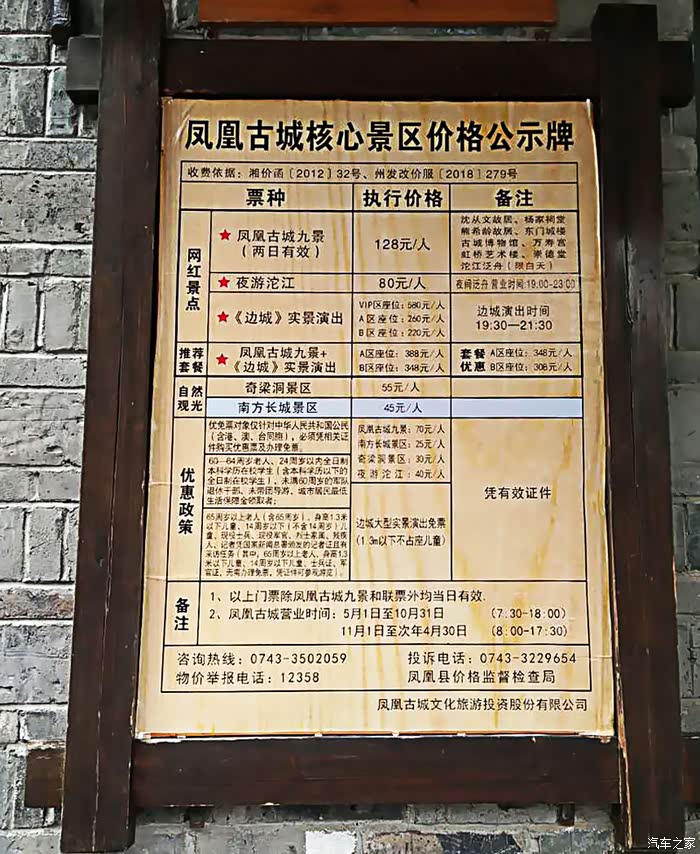 凤凰古城核心景区价格公示牌
收费依据：湘价函〔2012〕32号、州发改价服〔2018〕279号
票种 执行价格 备注
网红景点
★ 凤凰古城九景
（两日有效）
128元/人
沈从文故居、杨家祠堂
熊希龄故居、东门城楼
古城博物馆、万寿宫
虹桥艺术楼、崇德堂
沱江泛舟（限白天）
★ 夜游沱江 80元/人 夜间泛舟 营业时间:19:00-23:00
★《边城》实景演出
VIP区座位：580元/人
A区座位：260元/人
B区座位：220元/人
边城演出时间
19:30—21:30
推荐套餐
★ 凤凰古城九景+
《边城》实景演出
A区座位：388元/人
B区座位：348元/人
套餐优惠
A区座位：348元/人
B区座位：308元/人
自然观光
奇梁洞景区 55元/人
南方长城景区 45元/人
优惠政策
优免票对象仅针对中华人民共和国公民
（含港、澳、台同胞），必须凭相关证
件购买优惠票及办理免票。
60—64周岁老人、24周岁以内全日制
本科学历在校学生（含本科学历以下的
全日制在校学生），未满60周岁的军队
退休干部、未带团导游、城市居民最低
生活保障金领取者；
凤凰古城九景：70元/人
南方长城景区：25元/人
奇梁洞景区：30元/人
夜游沱江：40元/人
65周岁以上老人（含65周岁），身高1.3米
以下儿童、14周岁以下（不含14周岁）儿
童、现役士兵、现役军官、烈士家属、残疾
人、记者凭国家新闻总署颁发的记者证且有
采访任务（其中，65周岁以上老人、身高1.3
米以下儿童、14周岁以下儿童、士兵证、军
官证，无需办理免票，凭证件可参观游览）；
边城大型实景演出免票
（1.3m以下不占座儿童）
凭有效证件
备注
1、以上门票除凤凰古城九景和联票外均当日有效.
2、凤凰古城营业时间：5月1日至10月31日 （7:30-18:00）
11月1日至次年4月30日 （8:00-17:30）
咨询热线：0743-3502059 投诉电话：0743-3229654
物价举报电话：12358 凤凰县价格监督检查局
凤凰古城文化旅游投资股份有限公司
汽车之家